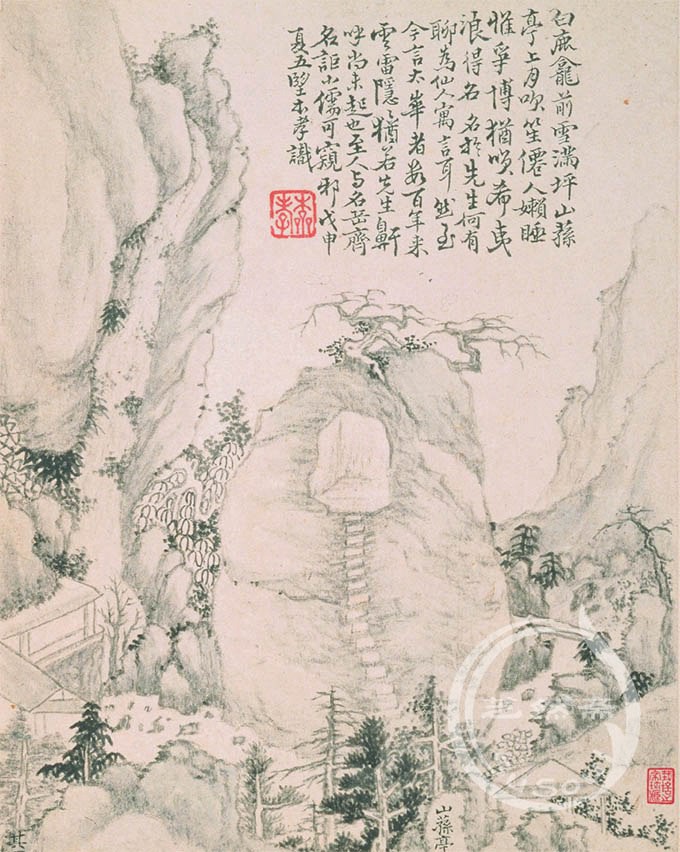 白鹿龕前雪滿坪山蓀
亭上月吹笙僊人嬾睡
惟爭博猶嘆希夷
浪得名名於先生何有
聊為仙人寓言耳然至
今言太華者數百年来
雲雷隱〻猶若先生鼻鼾
呼尚未起也至人与名岳齊
名詎小儒可窺邪戊申
夏五望本孝識
本孝
山蓀亭